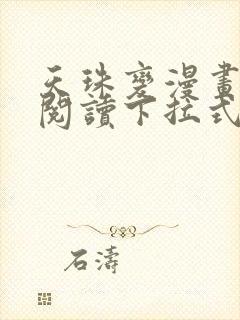 天珠變漫畫
閱讀下拉式
石濤